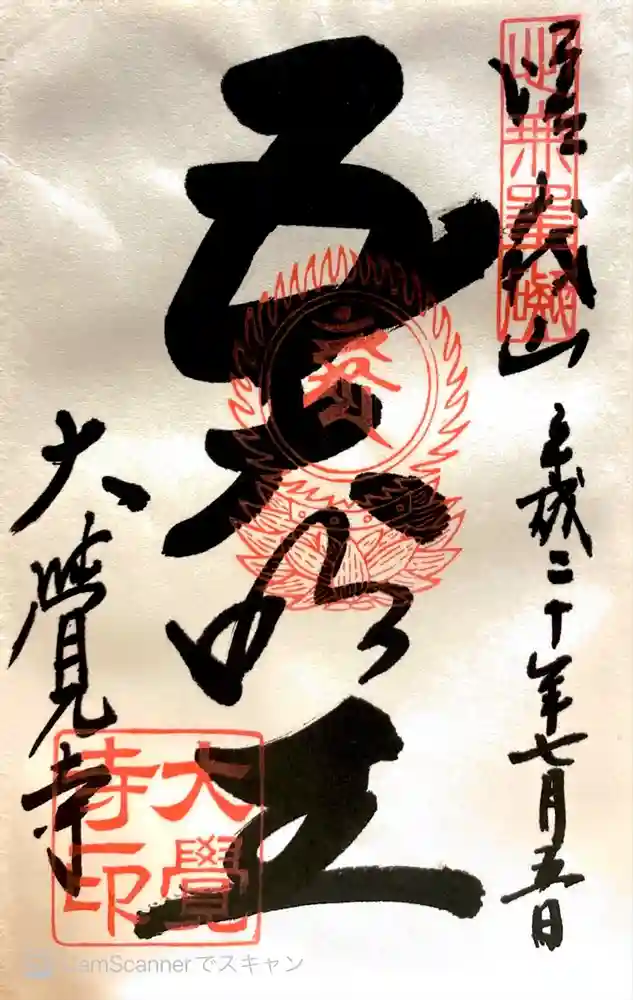 嵯峨山
平成二十年七月五日
五大明王
大覺寺
大覺
寺印
CamScannerでスキャン